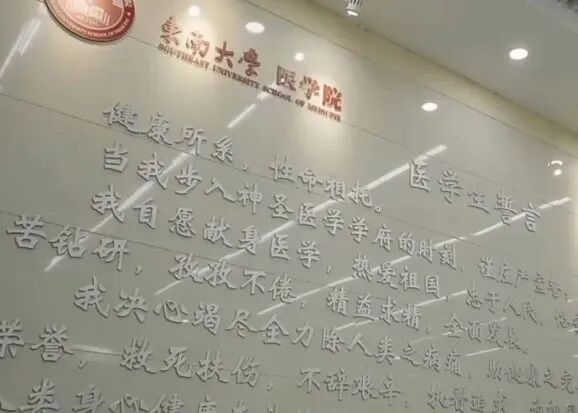 東南大学 医学院
SOUTHEAST UNIVERSITY SCHOOL OF MEDICINE
医学生誓言
健康所系，性命相托。
当我步入神圣医学学府的时刻，谨庄严宣誓：
我自愿献身医学，热爱祖国，忠于人民，
苦钻研，孜孜不倦，精益求精，全面发展。
我决心竭尽全力除人类之病痛，助健康之完
荣誉，救死扶伤，不辞艰辛，执着追求，
人类身心健康